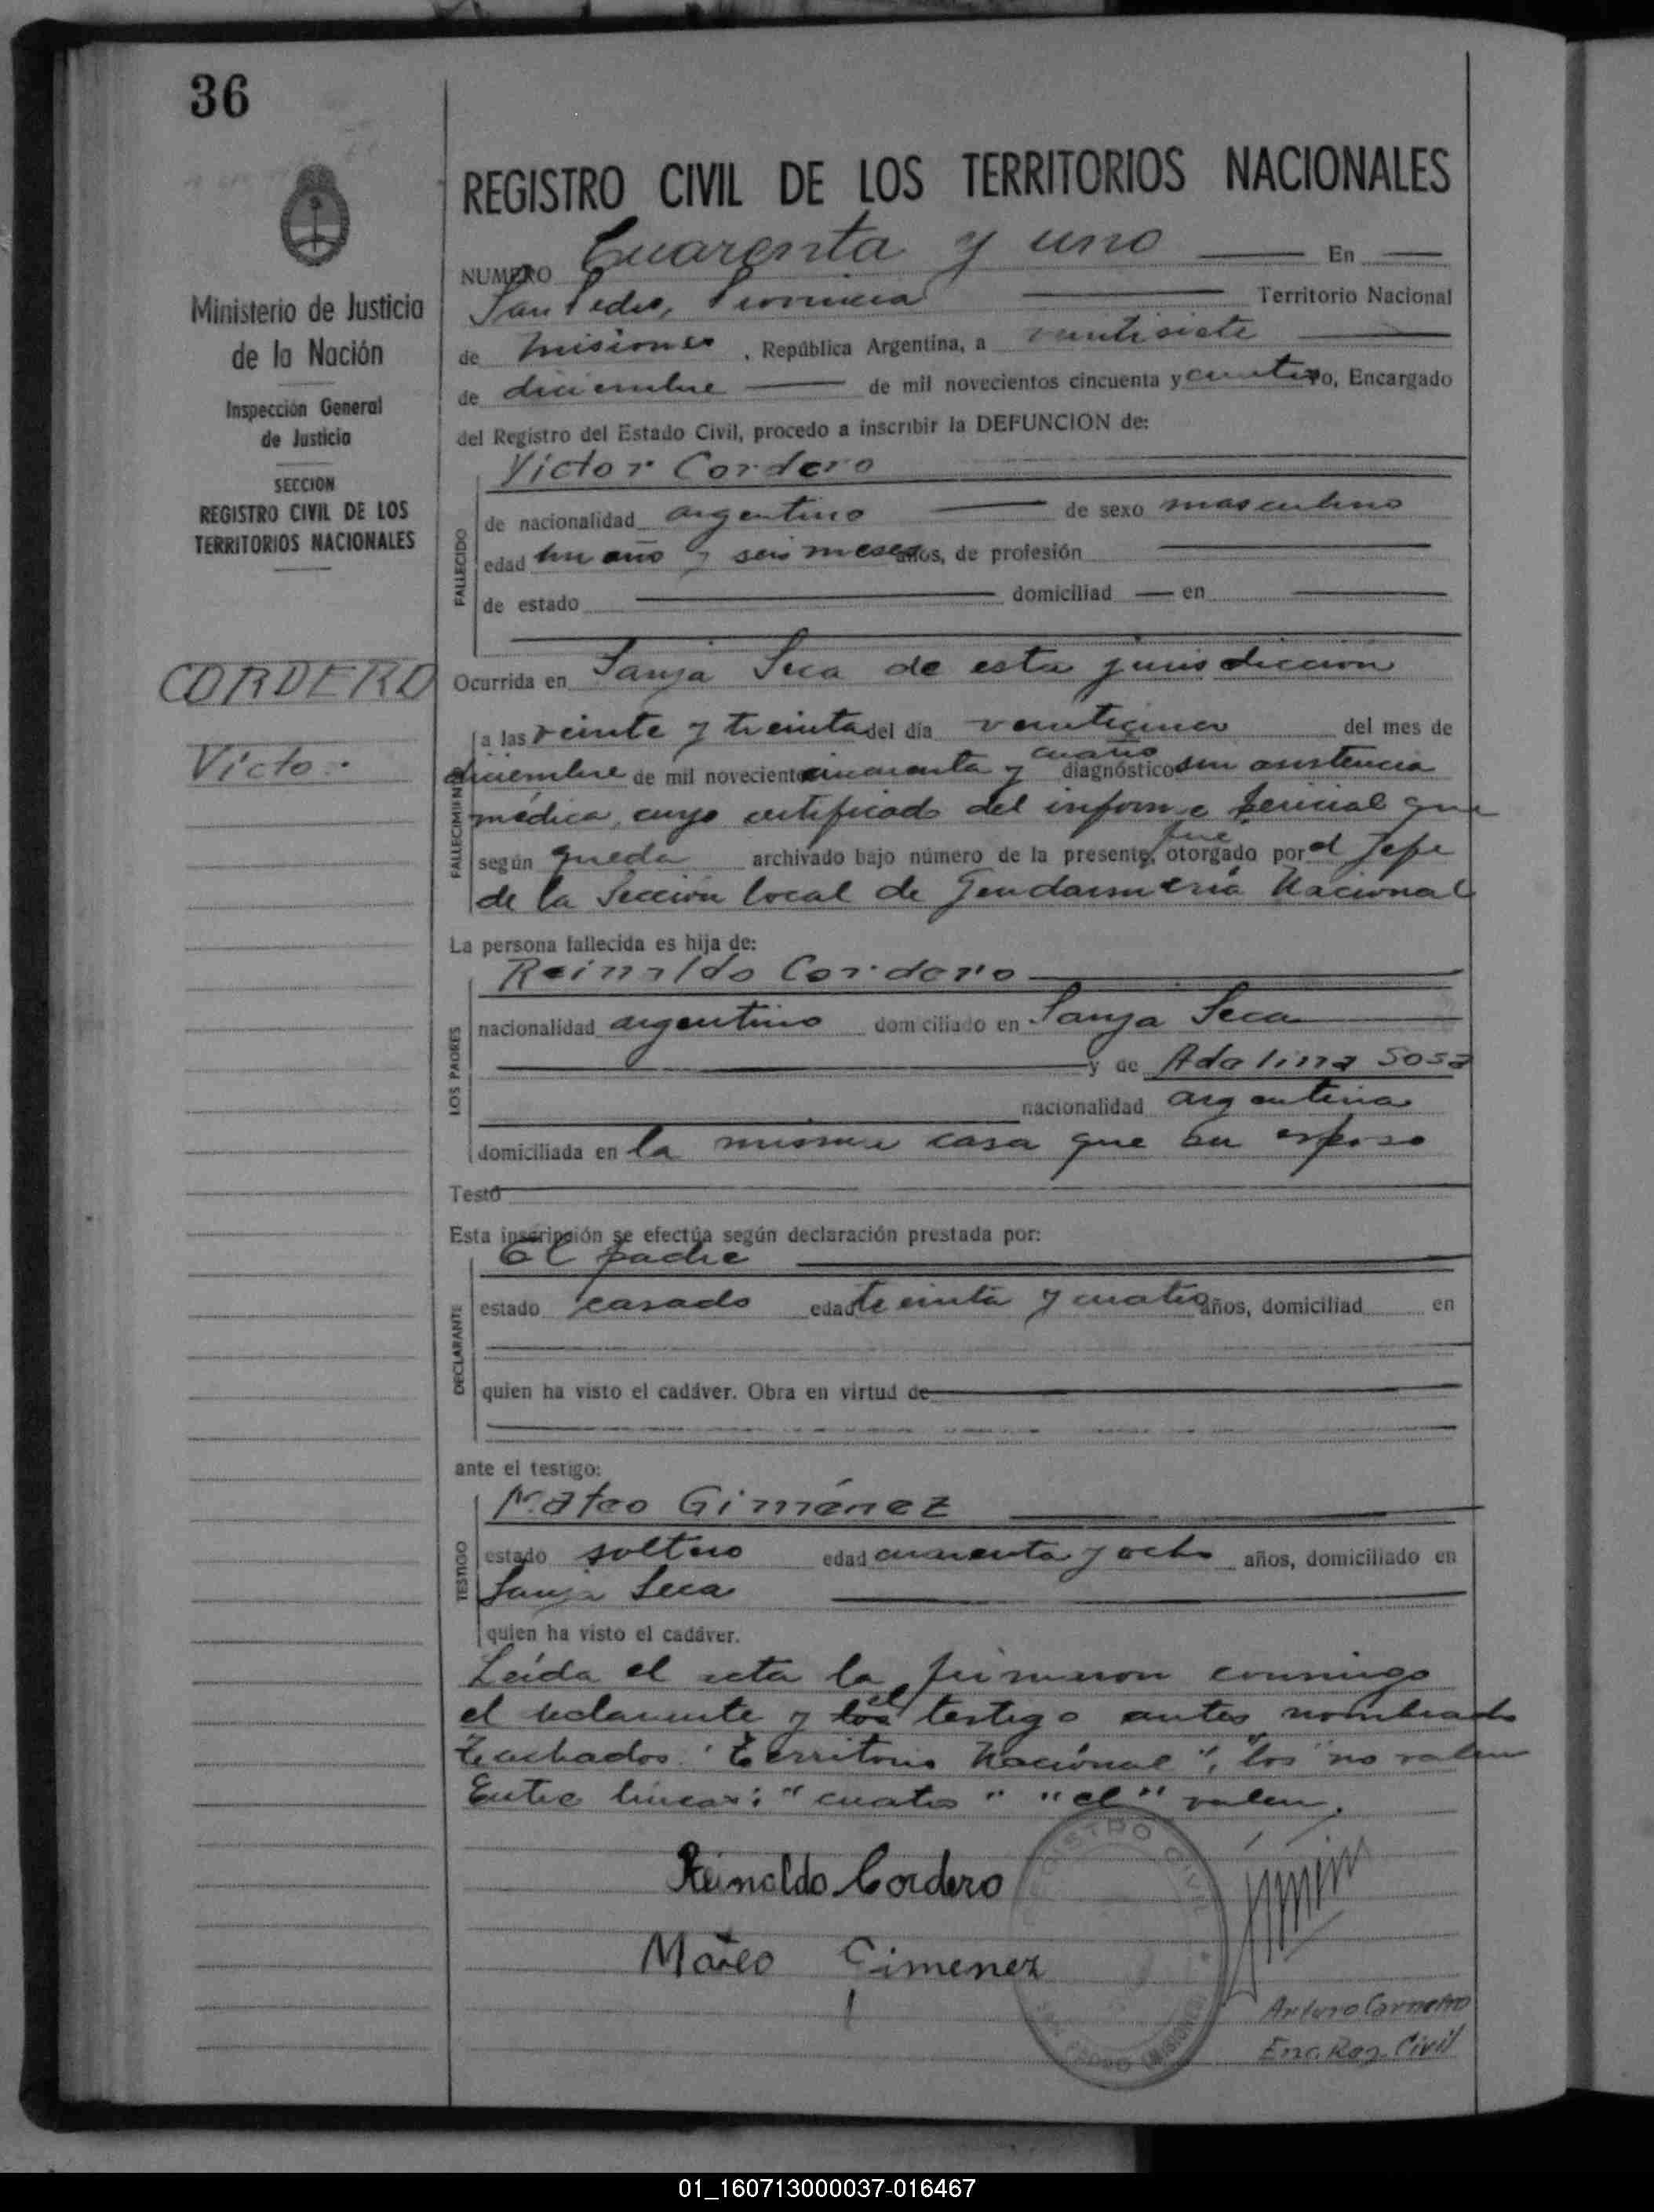 36
REGISTRO CIVIL DE LOS TERRITORIOS NACIONALES
NUMERO Cuarenta y uno En
San Pedro, Provincia Territorio Nacional
de Misiones, República Argentina, a veintisiete
de diciembre de mil novecientos cincuenta y cuatro yo, Encargado
del Registro del Estado Civil, procedo a inscribir la DEFUNCION de:
Ministerio de Justicia
de la Nación
Inspección General
de Justicia
SECCION
REGISTRO CIVIL DE LOS
TERRITORIOS NACIONALES
CORDERO
Victo
FALLECIDO
Victor Cordero
de nacionalidad argentino de sexo masculino
edad un año y seis meses años, de profesión
de estado domiciliad en
Ocurrida en Sanja Seca de esta jurisdiccion
FALLECIMIENTO
a las veinte y treinta del día veinticinco del mes de
cuatro
diciembre de mil novecientos cincuenta y diagnóstico sin asistencia
médica, cuyo certificado del informe pericial que
fue
según queda archivado bajo número de la presente, otorgado por el Jefe
de la Sección local de Gendarmería Nacional
La persona fallecida es hija de:
LOS PADRES
Reinaldo Cordero
nacionalidad argentino domiciliado en Sanja Seca
y de Adalina Sosa
nacionalidad argentina
domiciliada en la misma casa que su esposo
Testó
Esta inscripción se efectúa según declaración prestada por:
DECLARANTE
El padre
estado casado edad treinta y cuatro años, domiciliad en
quien ha visto el cadáver. Obra en virtud de
ante el testigo:
TESTIGO
Mateo Giménez
estado soltero edad cuarenta y ocho años, domiciliado en
Sanja Seca
quien ha visto el cadáver.
Leída el acta la firmaron conmigo
el declarante y los el testigo antes nombrado
Tachados: "Territorio Nacional", "los" no valen
Entre lineas: "cuatro" "el" valen.
Reinaldo Cordero
Mateo Gimenez
REGISTRO CIVIL
SAN PEDRO (MISIONES)
Arturo
Enc. Reg. Civil
01_160713000037-016467